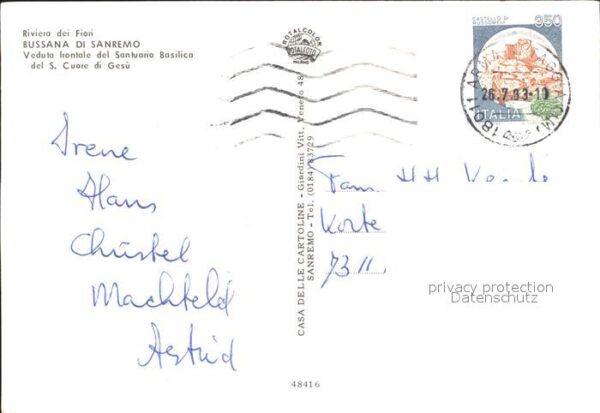 Riviera dei Fiori
BUSSANA DI SANREMO
Veduta frontale del Santuario Basilica
del S. Cuore di Gesù
ROTALCOLOR
ROTALFOTO
MILANO
350
26.7.93-10
18011
ITALIA
Irene
Hans
Christel
Machteld
Astrid
CASA DELLE CARTOLINE - Giardini Vitt. Veneto 48
SANREMO - Tel. (0184) 83729
Fam H H
Korte
7311
privacy protection
Datenschutz
48416